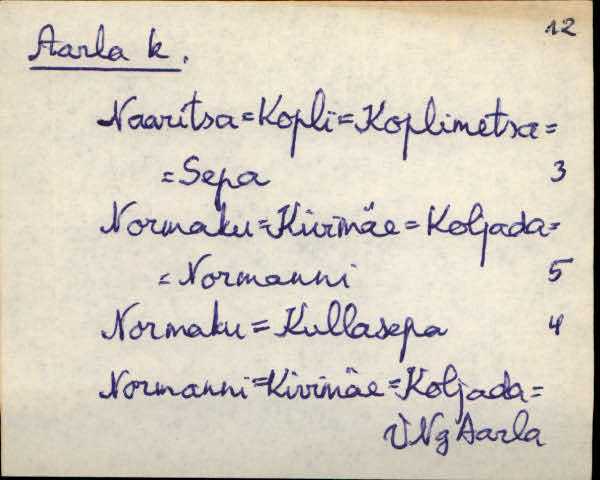 12
Aarla k.
Naaritsa=Kopli=Koplimetsa=
=Sepa 3
Normaku=Kivimäe=Koljada=
=Normanni 5
Normaku=Kullasepa 4
Normanni=Kivimäe=Koljada=
VNg Aarla